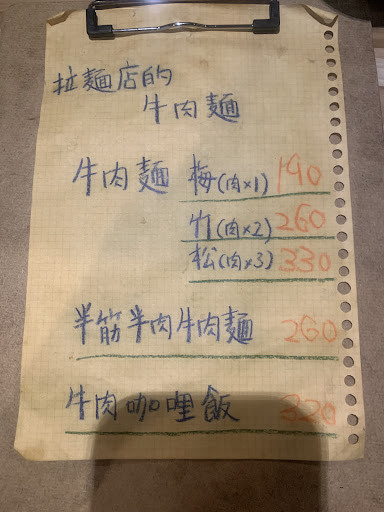 拉麵店的
牛肉麵
牛肉麵 梅(肉×1) 190
竹(肉×2) 260
松(肉×3) 330
半筋半肉牛肉麵 260
牛肉咖哩飯 320